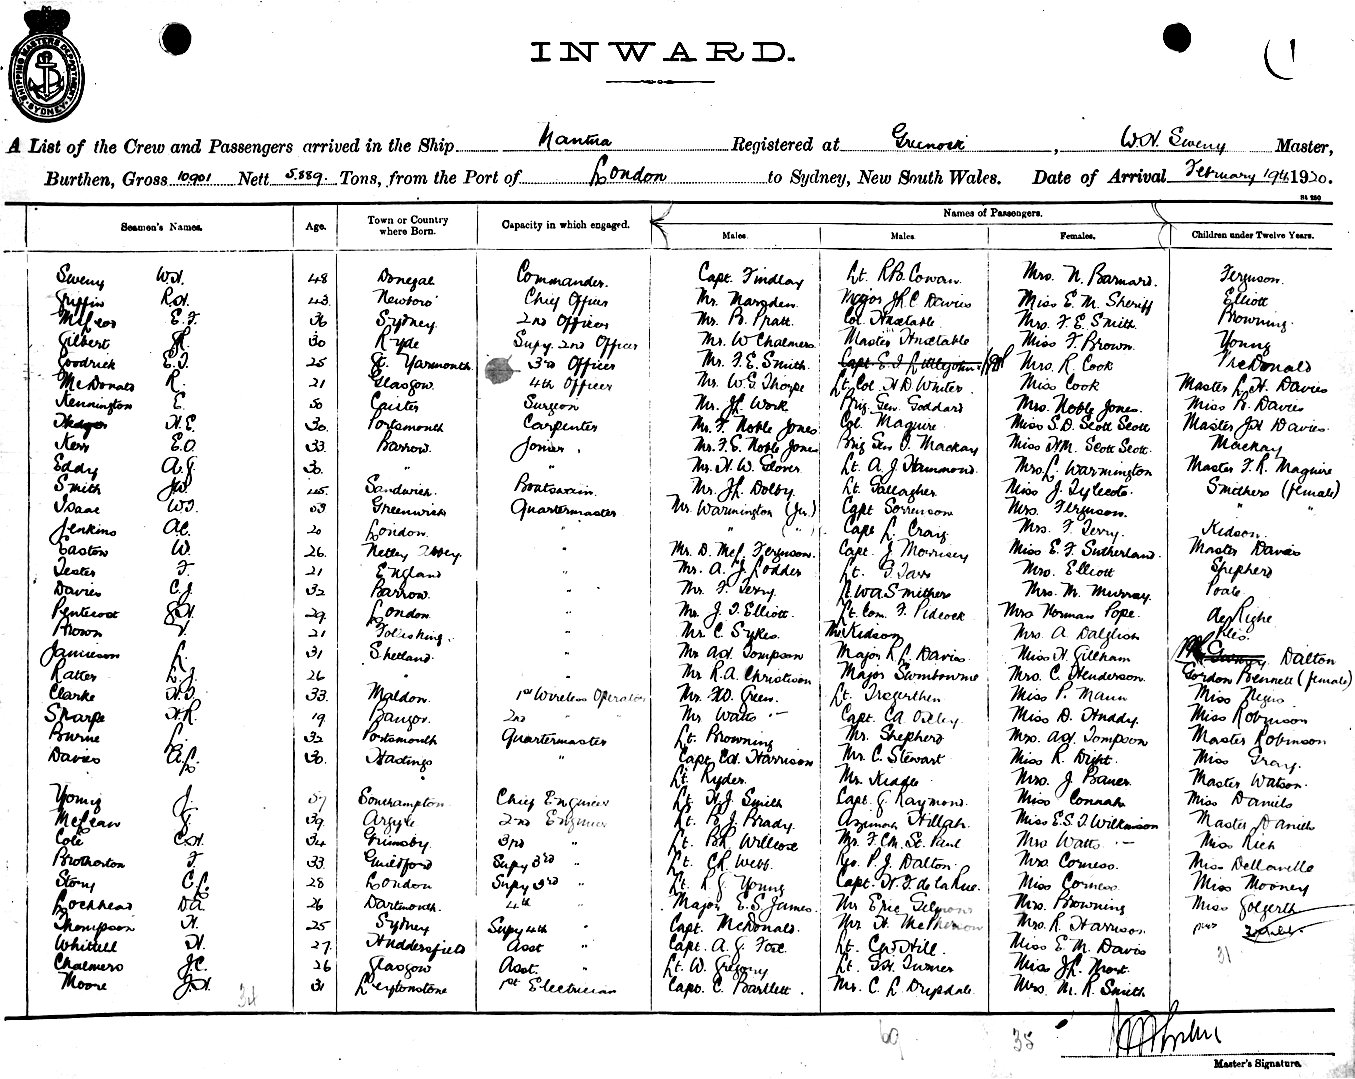 SHIPPING MASTERS DEPARTMENT SYDNEY
( 1
INWARD.
A List of the Crew and Passengers arrived in the Ship Mantua Registered at Greenock , W.H. Sweny Master,
Burthen, Gross 10901 Nett 5.889. Tons, from the Port of London to Sydney, New South Wales. Date of Arrival February 19th 1920.
Names of Passengers.
Seamen's Names. Age. Town or Country where Born. Capacity in which engaged. Males. Males Females. Children under Twelve Years.
Sweny W.H. 48 Donegal Commander. Capt. Findlay Lt. R.B. Cowan. Mrs. N. Barnard. Ferguson.
Griffin R.H. 43. Newboro' Chief Officer Mr. Marsden. Major J.L.C Davies Miss E. M. Sheriff Elliott
E. F. 36 Sydney. 2nd Officer Mr. B. Pratt. Col. Huxtable. Mrs. F. E. Smith. Browning.
Gilbert 30 Ryde Supy. 2nd Officer Mr. W Chalmers. Master Huxtable Miss F. Brown. Young
Goodrick E.F. 25 Gt. Yarmouth 3rd Officer Mr. F. E. Smith. Capt. E. F. Littlejohns Mrs. R. Cook McDonald.
McDonald R. 21 Glasgow. 4th Officer Mr. W. G Thorpe Lt. Col. H. D. Miss Cook Master L. H. Davies
Kennington E. 50 Caister Surgeon Mr. Jh. Work Brig. Gen. Goddard Mrs. Noble Jones. Miss B. Davies
H.E. 30. Portsmouth Carpenter Mr. F. Noble Jones Col. Maguire Miss S.D. Scott Scott Master J.H Davies.
Kerr E.O. 33 Barrow. Joiner. Mr. F. E. Noble Jones Brig Gen J. Mackay Miss H.M. Scott Scott. Mackay
Eddy A.G. 30. " " Mr. H. W. Glover Lt. A. J Hammond. Mrs. L. Warmington Master F. R. Maguire
Smith J.W. 45. Sandwich. Boatswain. Mr. Jh. Dolby. Lt. Gallagher Miss J. Tylecote. Smithers (female)
Isaac W.J. 53 Greenwich Quartermaster Mr. Warmington (Jnr.) Capt Sorrenson. Mrs. Ferguson. " "
Jenkins A.C. 20 London. " " ( " ) Capt L. Craig Mrs. F. Terry. Kidson
Easton W. 26. Netley Abbey. " Mr. D. McL. Ferguson. Capt. J Morrisey Miss E. F. Sutherland. Master Davies
Tester F. 21 England " Mr. A. J. Lodder Lt. F. Tarr Mrs. Elliott Shepherd
Davies C.J. 32 Barrow. " Mr. F. Terry. Lt. W.A. Smithers Mrs. M. Murray. Poate
Pentecost 29. London. " Mr. J. F. Elliott. Lt. Com. F. Pidcock. Mrs Norman Pope. de Righe
Brown 21 Folkeshing. " Mr C. Sykes. Mr Kidson Mrs. A. Dalglish
Jamieson L. 31 Shetland. " Mr AH Tompson Major R L Davis. Miss H. Gilham Dalton
Ratter L. J. 26 " " Mr. R.A. Christison Major Swinbourne Mrs. C. Henderson. Gordon Bennett (female)
Clarke H.F. 33. Maldon. 1st Wireless Operator Mr. H.D. Green. Lt. Tregarthen Miss P. Mann Miss Negus
Sharpe H.R. 19 Bangor. 2nd " " Mr Watts Capt. C.A. Oxley. Miss D. Huddy. Miss Robinson
Bourne L. 32 Portsmouth Quartermaster Lt. Browning Mr. Shepherd Mrs. AH Tompson Master Robinson
Davies A.L. 30. Hastings. " Capt. Ed. Harrison Mr. C. Stewart Miss R. Dight. Miss Gray.
Lt. Ryder. Mr. Kiddle Mrs. J. Baner. Master Watson.
Young J. 57 Southampton. Chief Engineer Lt. H. J. Smith Capt. G. Raymond. Miss Connah Miss Daniels
McLean J. 39. Argyle 2nd Engineer Lt. B. J. Brady. Azimah Hillah. Miss E.S.J. Wilkinson Master Daniels
Cole C.H. 34 Grimsby. 3rd " Lt. B.R. Willcox Mr. F. C.M. St. Paul Mrs Watts Miss Rich
Brotherton F. 33. Guildford Supy 3rd " Lt. C.R. Webb. Rev. P. J. Dalton. Mrs. Corness. Miss Dellaville
Story C.L. 28 London Supy 3rd " Lt. R. G. Young Capt. H. F. de la Rue. Miss Corness. Miss Mooney
Lochhead D.A. 26 Dartmouth. 4th " Major E. S James. Mr Eric Gilmour Mrs. Browning Miss Golgerth
Thompson H. 25 Sydney Supy 4th " Capt. McDonald. Mr H. McPherson Mrs. R. Harrison
Whittell H. 27. Huddersfield Asst " Capt. A. G. Fox. Lt. C.W. Hill. Miss E. M. Davis 31
Chalmers J.C. 26 Glasgow Asst. " Lt. W. Gregory Lt. G.H. Turner Miss Jh. Mort
Moore J.H. 31 Leytonstone 1st Electrician Capt. C. Bartlett. Mr. C. L Drysdale Mrs. M. R. Smith
34 69 35
Master's Signature.